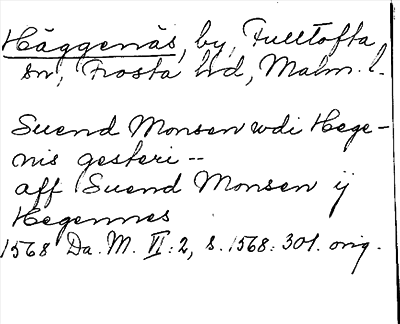 Häggenäs, by, Fulltofta
sn, Frosta hd, Malm. l.
Suend Monsen udi Hege-
nis gesteri --
aff Suend Monsen ij
Hegennes
1568 Da. M. VI:2, s. 1568: 301. orig.